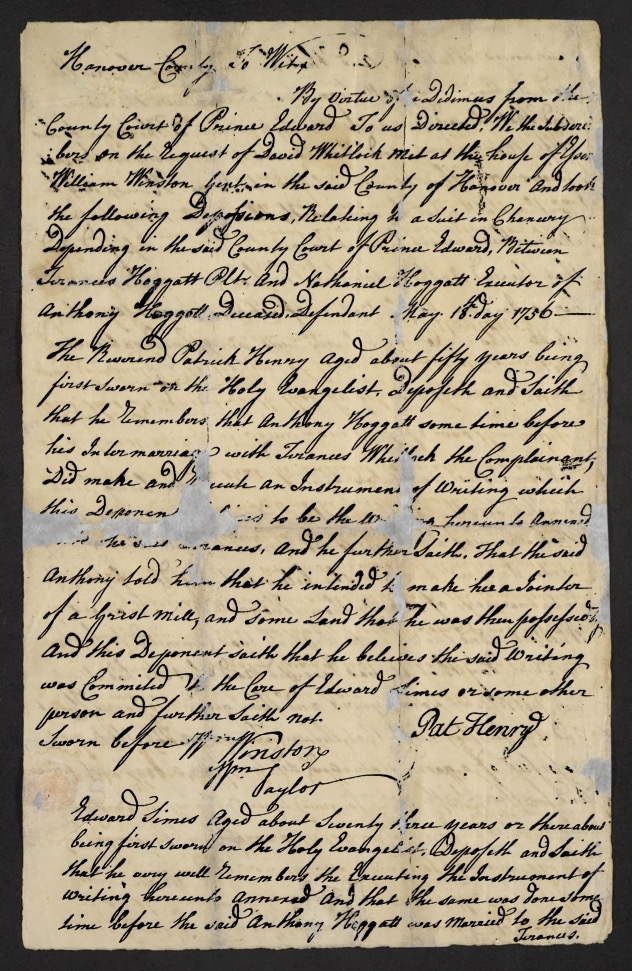 Hanover County To Wit
By Virtue of a Didimus from the
County Court of Prince Edward To us Directed, We the Subscri
bers on the request of David Whitlock met at the house of
William Winston Gent. in the said County of Hanover And took
the following Deposions, Relating to a Suit in Chencury
Depending in the said County Court of Prince Edward, Between
Frances Hoggatt Plt. And Nathaniel Hoggatt Executor of
Anthony Hoggatt Deceased, Defendant May 18th Day 1756
The Reverend Patrick Henry Aged about fifty years being
first sworn on the Holy Evangelist, Deposeth and Saith
that he remembers that Anthony Hoggatt some time before
his Intermarriage with Frances Whitlock the Complainant,
Did make and Execute an Instrument of Writing which
this Deponen to be the hereunto Annexed
Frances, And he further Saith, That the said
Anthony told him that he intended to make her a Jointer
of a Grist Mill, and some Land that he was then possessed of,
And this Deponent saith that he believes the said Writing
was Commited to the Care of Edward Simes or some other
person and further Saith not.
Pat Henry
Sworn before Winston
Taylor
Edward Simes Aged about Seventy three years or thereabout
being first sworn on the Holy Evangelist, Deposeth and Saith
that he very well remembers the Executing the Instrument of
Writing hereunto Annexed And that the same was done some
time before the said Anthony Hoggatt was Married to the said
Frances.